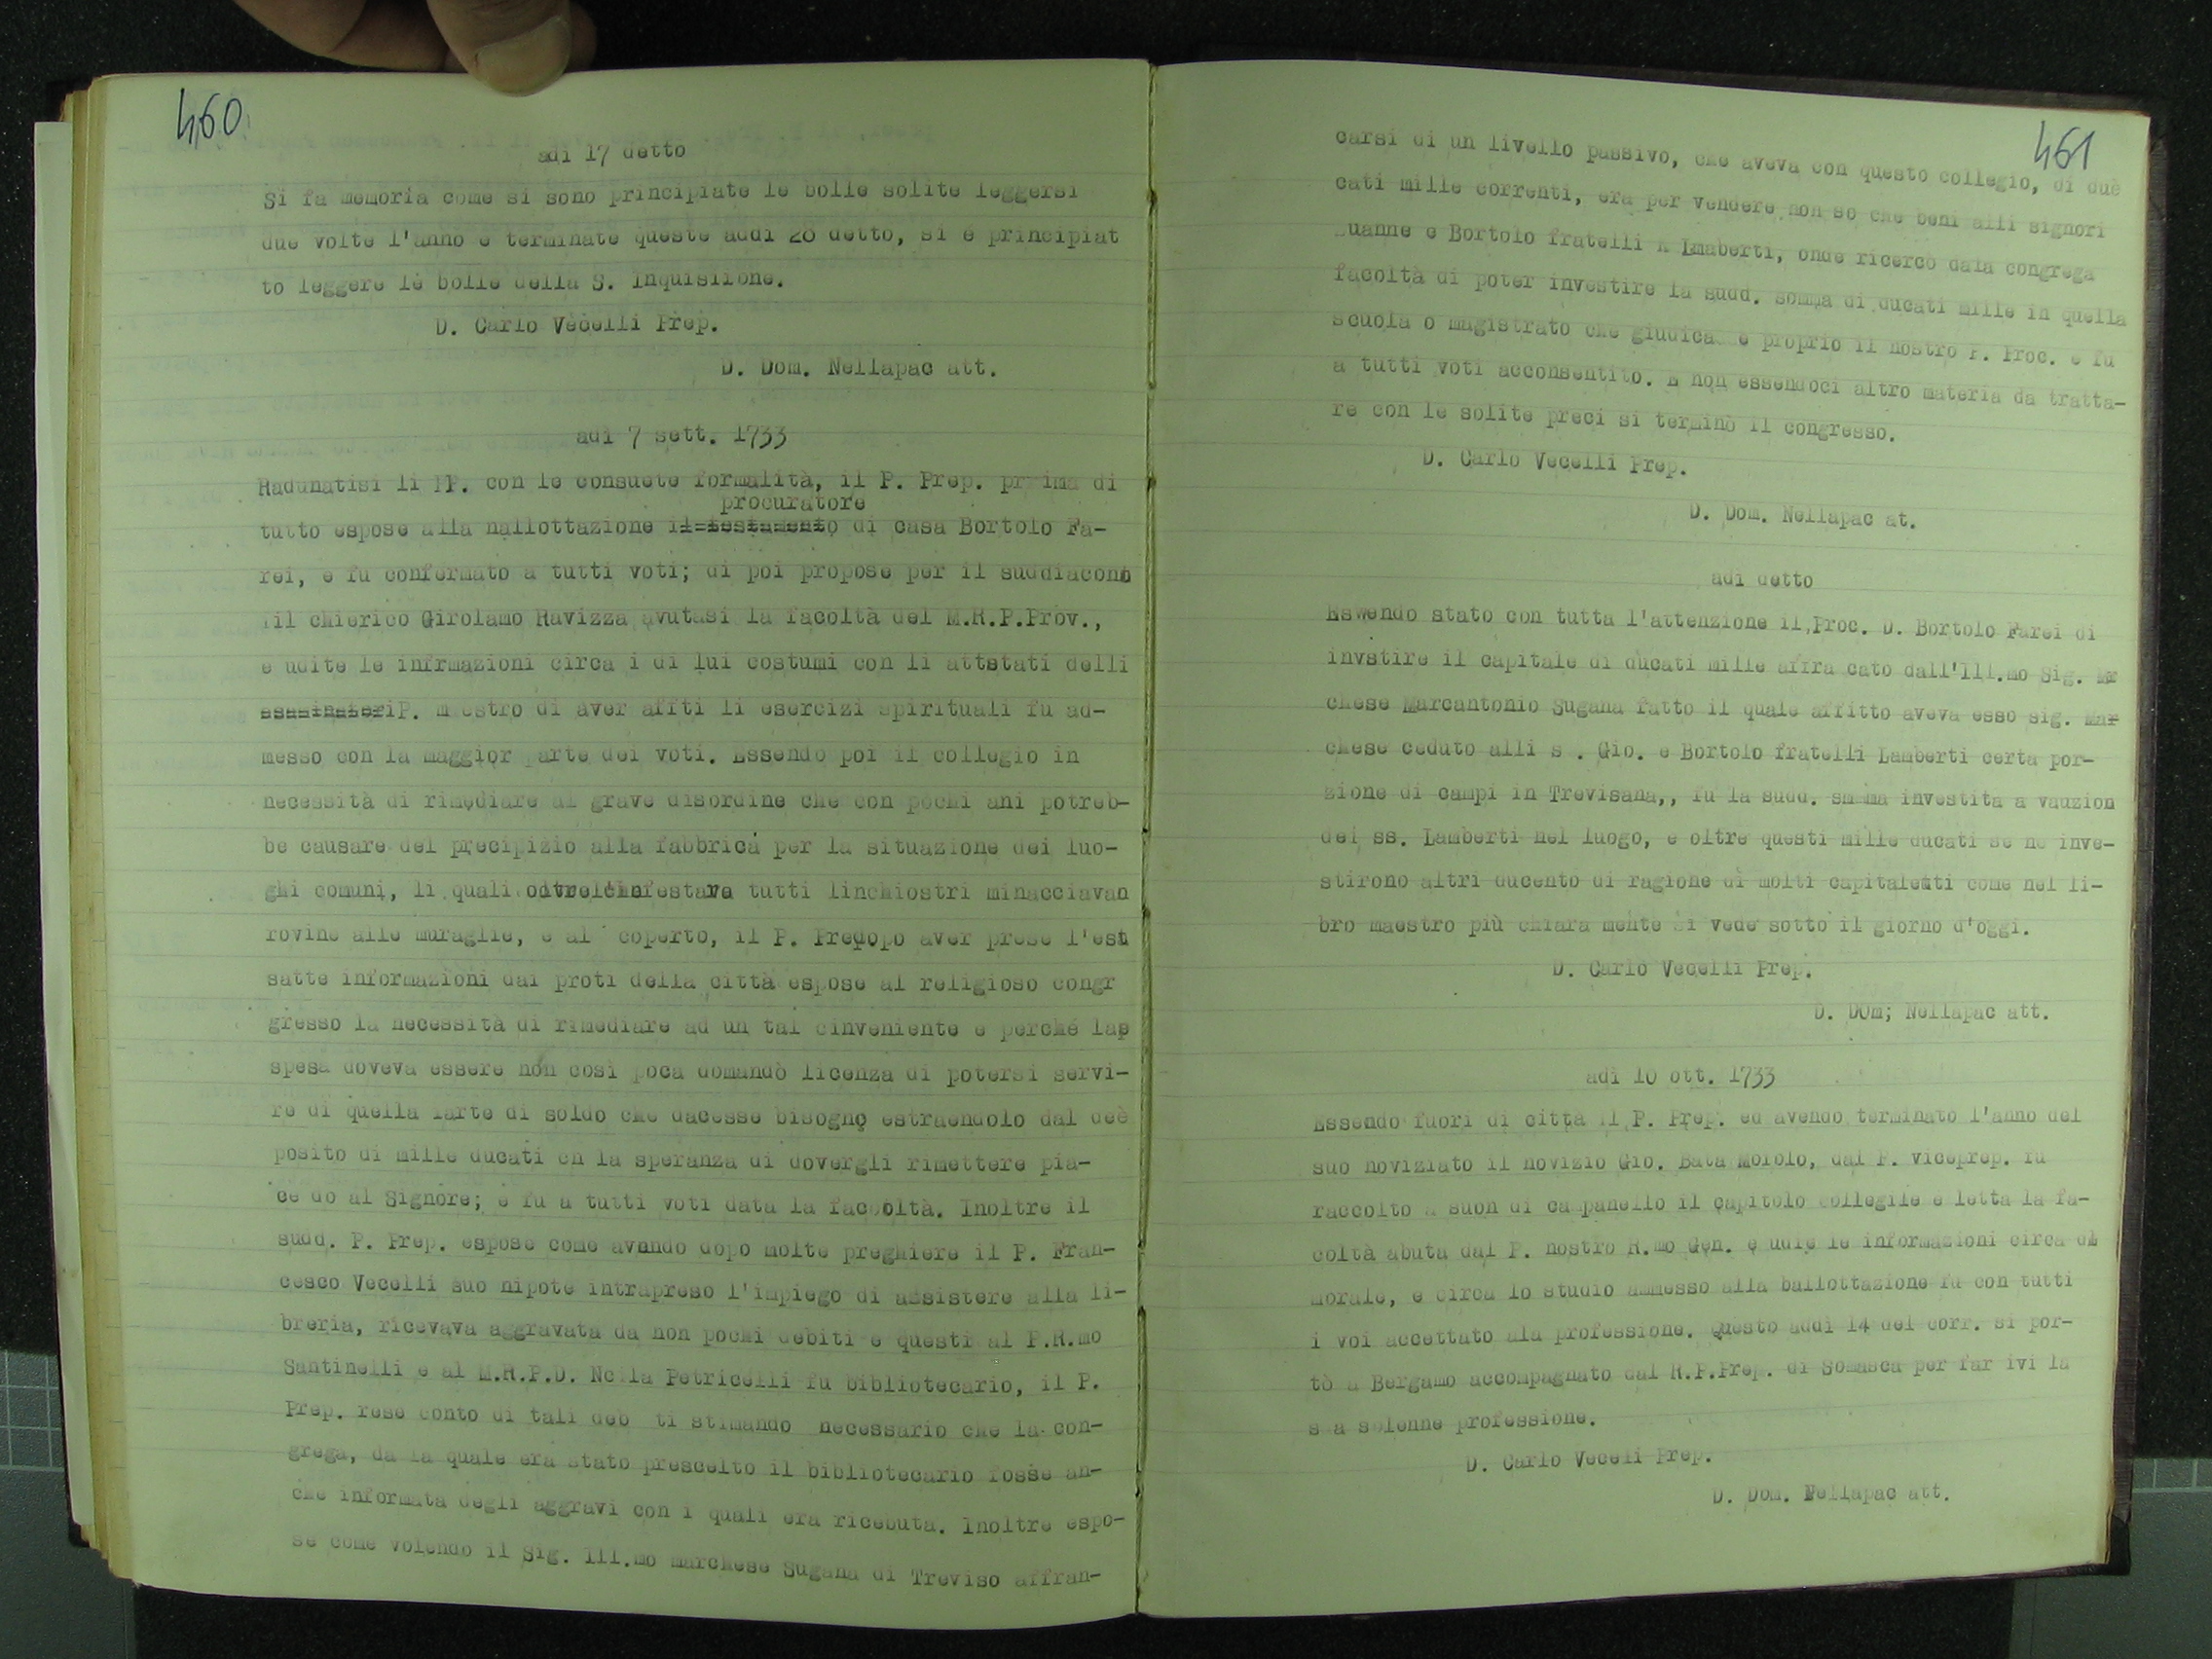 460
adì 17 detto
Si fa memoria come si sono principiate le bolle solite leggersi
due volte l'anno e terminate queste addì 28 detto, si è principiat
to leggere le bolle della S. Inquisiione.
D. Carlo Vecelli Prep.
D. Dom. Nellapac att.
adì 7 sett. 1733
Radunatisi li PP. con le consuete formalità, il P. Prep. prima di
procuratore
tutto espose alla nallottazione il testamento di casa Bortolo Fa-
rei, e fu confermato a tutti voti; di poi propose per il suddiacono
il chierico Girolamo Ravizza avutasi la facoltà del M.R.P.Prov.,
e udite le infrmazioni circa i di lui costumi con li attstati delli
P. maestro di aver affti li esercizi spirituali fu ad-
messo con la maggior arte dei voti. Essendo poi il collegio in
necessità di rimediare al grave disordine che con pochi ani potreb-
be causare del precipizio alla fabbrica per la situazione dei luo-
ghi comuni, li quali tutti linchiostri minacciavan
rovine alle muraglie, e al coperto, il P. Predopo aver prese l'est
satte informazioni dai proti della città espose al religioso congr
gresso la necessità di rimediare ad un tal cinveniente e perché lap
spesa doveva essere non così poca domandò licenza di potersi servi-
re di quella larte di soldo che dacesse bisogno estraendolo dal deè
posito di mille ducati cn la speranza di dovergli rimettere pia-
ce do al Signore; e fu a tutti voti data la facooltà. Inoltre il
sudd. P. Prep. espose come avnndo dopo molte preghiere il P. Fran-
cesco Vecelli suo nipote intrapreso l'impiego di assistere alla li-
breria, ricevava aggravata da non pochi debiti e questi al P.R.mo
Santinelli e al M.R.P.D. Nc la Petricelli fu bibliotecario, il P.
Prep. rese conto di tali deb ti stimando necessario che la con-
grega, da la quale era stato prescelto il bibliotecario fosse an-
che informata degli aggravi con i quali era ricebuta. Inoltre espo-
se come volendo il Sig. Ill.mo marchese Sugana di Treviso affran-
461
carsi di un livello passivo, che aveva con questo collegio, di duè
cati mille correnti, era per vendere non so che beni alli signori
Zuanne e Bortolo fratelli Lmaberti, onde ricercò dala congrega
facoltà di poter investire la sudd. somma di ducati mille in quella
scuola o magistrato che giudica e proprio il nostro P. Proc. e fu
a tutti voti acconsentito. E non essendoci altro materia da tratta-
re con le solite preci si terminò il congresso.
D. Carlo Vecelli Prep.
D. Dom. Nellapac at.
adì detto
Eswendo stato con tutta l'attenzione il Proc. D. Bortolo Farei di
invstire il capitale di ducati mille affra cato dall'Ill.mo Sig. Mar
chese Marcantonio Sugana fatto il quale affitto aveva esso sig. Mar
chese ceduto alli s . Gio. e Bortolo fratelli Lamberti certa por-
zione di campi in Trevisana,, fu la sudd. smmma investita a vauzion
dei ss. Lamberti nel luogo, e oltre questi mille ducati se ne inve-
stirono altri ducento di ragione di molti capitaletti come nel li-
bro maestro più chiara mente si vede sotto il giorno d'oggi.
D. Carlo Vecelli Prep.
D. DOm; Nellapac att.
adì 10 ott. 1733
Essendo fuori di città il P. Prep. ed avendo terminato l'anno del
suo noviziato il novizio Gio. Bata Morolo, dal P. viceprep. fu
raccolto a suon di campanello il capitolo collegile e letta la fa-
coltà abuta dal P. nostro R.mo Gen. e udie le informazioni circa dl
morale, e circa lo studio ammesso alla ballottazione fu con tutti
i voi accettato ala professione. Questo addì 14 del corr. si por-
tò a Bergamo accompagnato dal R.P.Prep. di Somasca per far ivi la
s a solenne professione.
D. Carlo Veceli Prep.
D. Dom. Nellapac att.